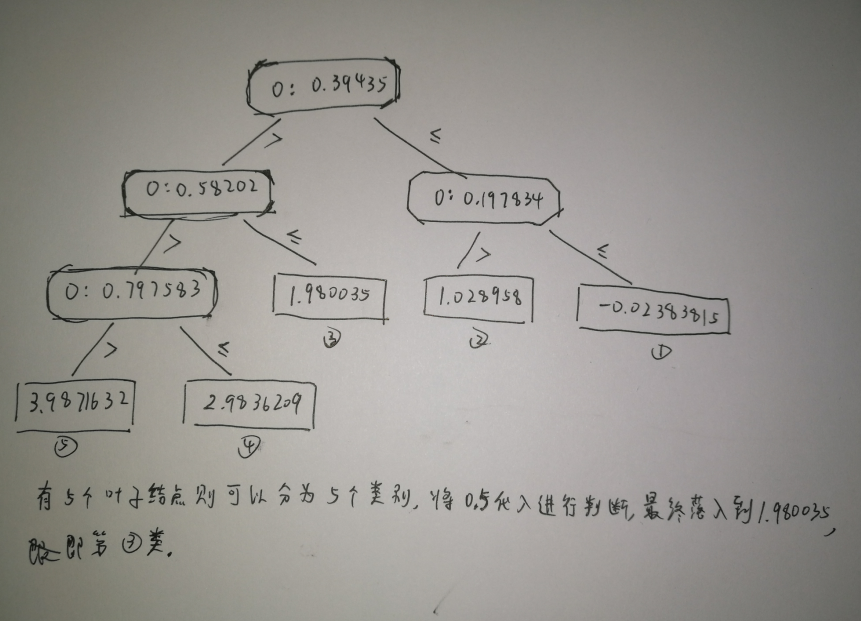 0: 0.39435
> ≤
0:0.58202
0: 0.197834
> ≤
> ≤
0: 0.797583
1.980035
1.028958
-0.02383815
③
②
①
> ≤
3.9871632
2.9836209
⑤
④
有5个叶子结点则可以分为5个类别,将0.5代入进行判断,最终落入到1.980035,
即第③类.